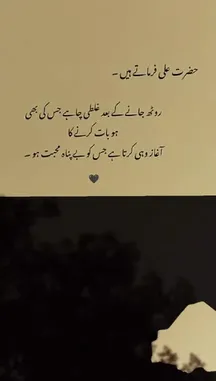 حضرت علی فرماتے ہیں ۔
روٹھ جانے کے بعد غلطی چاہے جس کی بھی
ہو بات کرنے کا
آغاز وہی کرتا ہے جس کو بے پناہ محبت ہو ۔